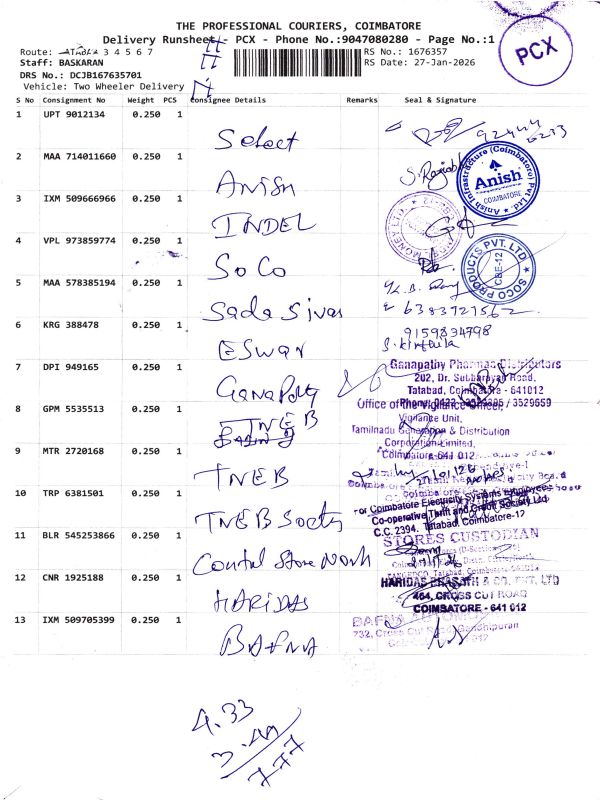 THE PROFESSIONAL COURIERS, COIMBATORE
Delivery Runsheet - PCX - Phone No.:9047080280 - Page No.:1
Route: 3 4 5 6 7
RS No.: 1676357
Staff: BASKARAN
RS Date: 27-Jan-2026
DRS No.: DCJB167635701
Vehicle: Two Wheeler Delivery
PCX
S No Consignment No Weight PCS Consignee Details Remarks Seal & Signature
1 UPT 9012134 0.250 1 Select
2 MAA 714011660 0.250 1 Anish
Anish Infrastructure (Coimbatore) Pvt Ltd.
Anish
COIMBATORE
3 IXM 509666966 0.250 1 INDEL
4 VPL 973859774 0.250 1 SoCo
SOCO PRODUCTS PVT. LTD
CBE-12
5 MAA 578385194 0.250 1 Sada Sivan
6383721562
6 KRG 388478 0.250 1 ESwar
9159834798
7 DPI 949165 0.250 1 Ganapathy
Ganapathy Pharmaa Distributors
202, Dr. Subbarayan Road,
Tatabad, Coimbatore - 641012
8 GPM 5535513 0.250 1 TNEB
Office of the Vigilance Officer,
Vigilance Unit,
Tamilnadu Generation & Distribution
Corporation Limited,
Coimbatore-641 012.
9 MTR 2720168 0.250 1 TNEB
10 TRP 6381501 0.250 1 TNEB Society
For Coimbatore Electricity Systems Employees
Co-operative Thrift and Credit Society Ltd
C.C. 2394, Tatabad, Coimbatore-12
11 BLR 545253866 0.250 1 Central Store North
STORES CUSTODIAN
12 CNR 1925188 0.250 1 HARIDAS
HARIDAS BHAGATH & CO. PVT. LTD
464, CROSS CUT ROAD
COIMBATORE - 641 012
13 IXM 509705399 0.250 1 BAFNA
732, Cross Cut Road, Gandhipuran
4.33
777